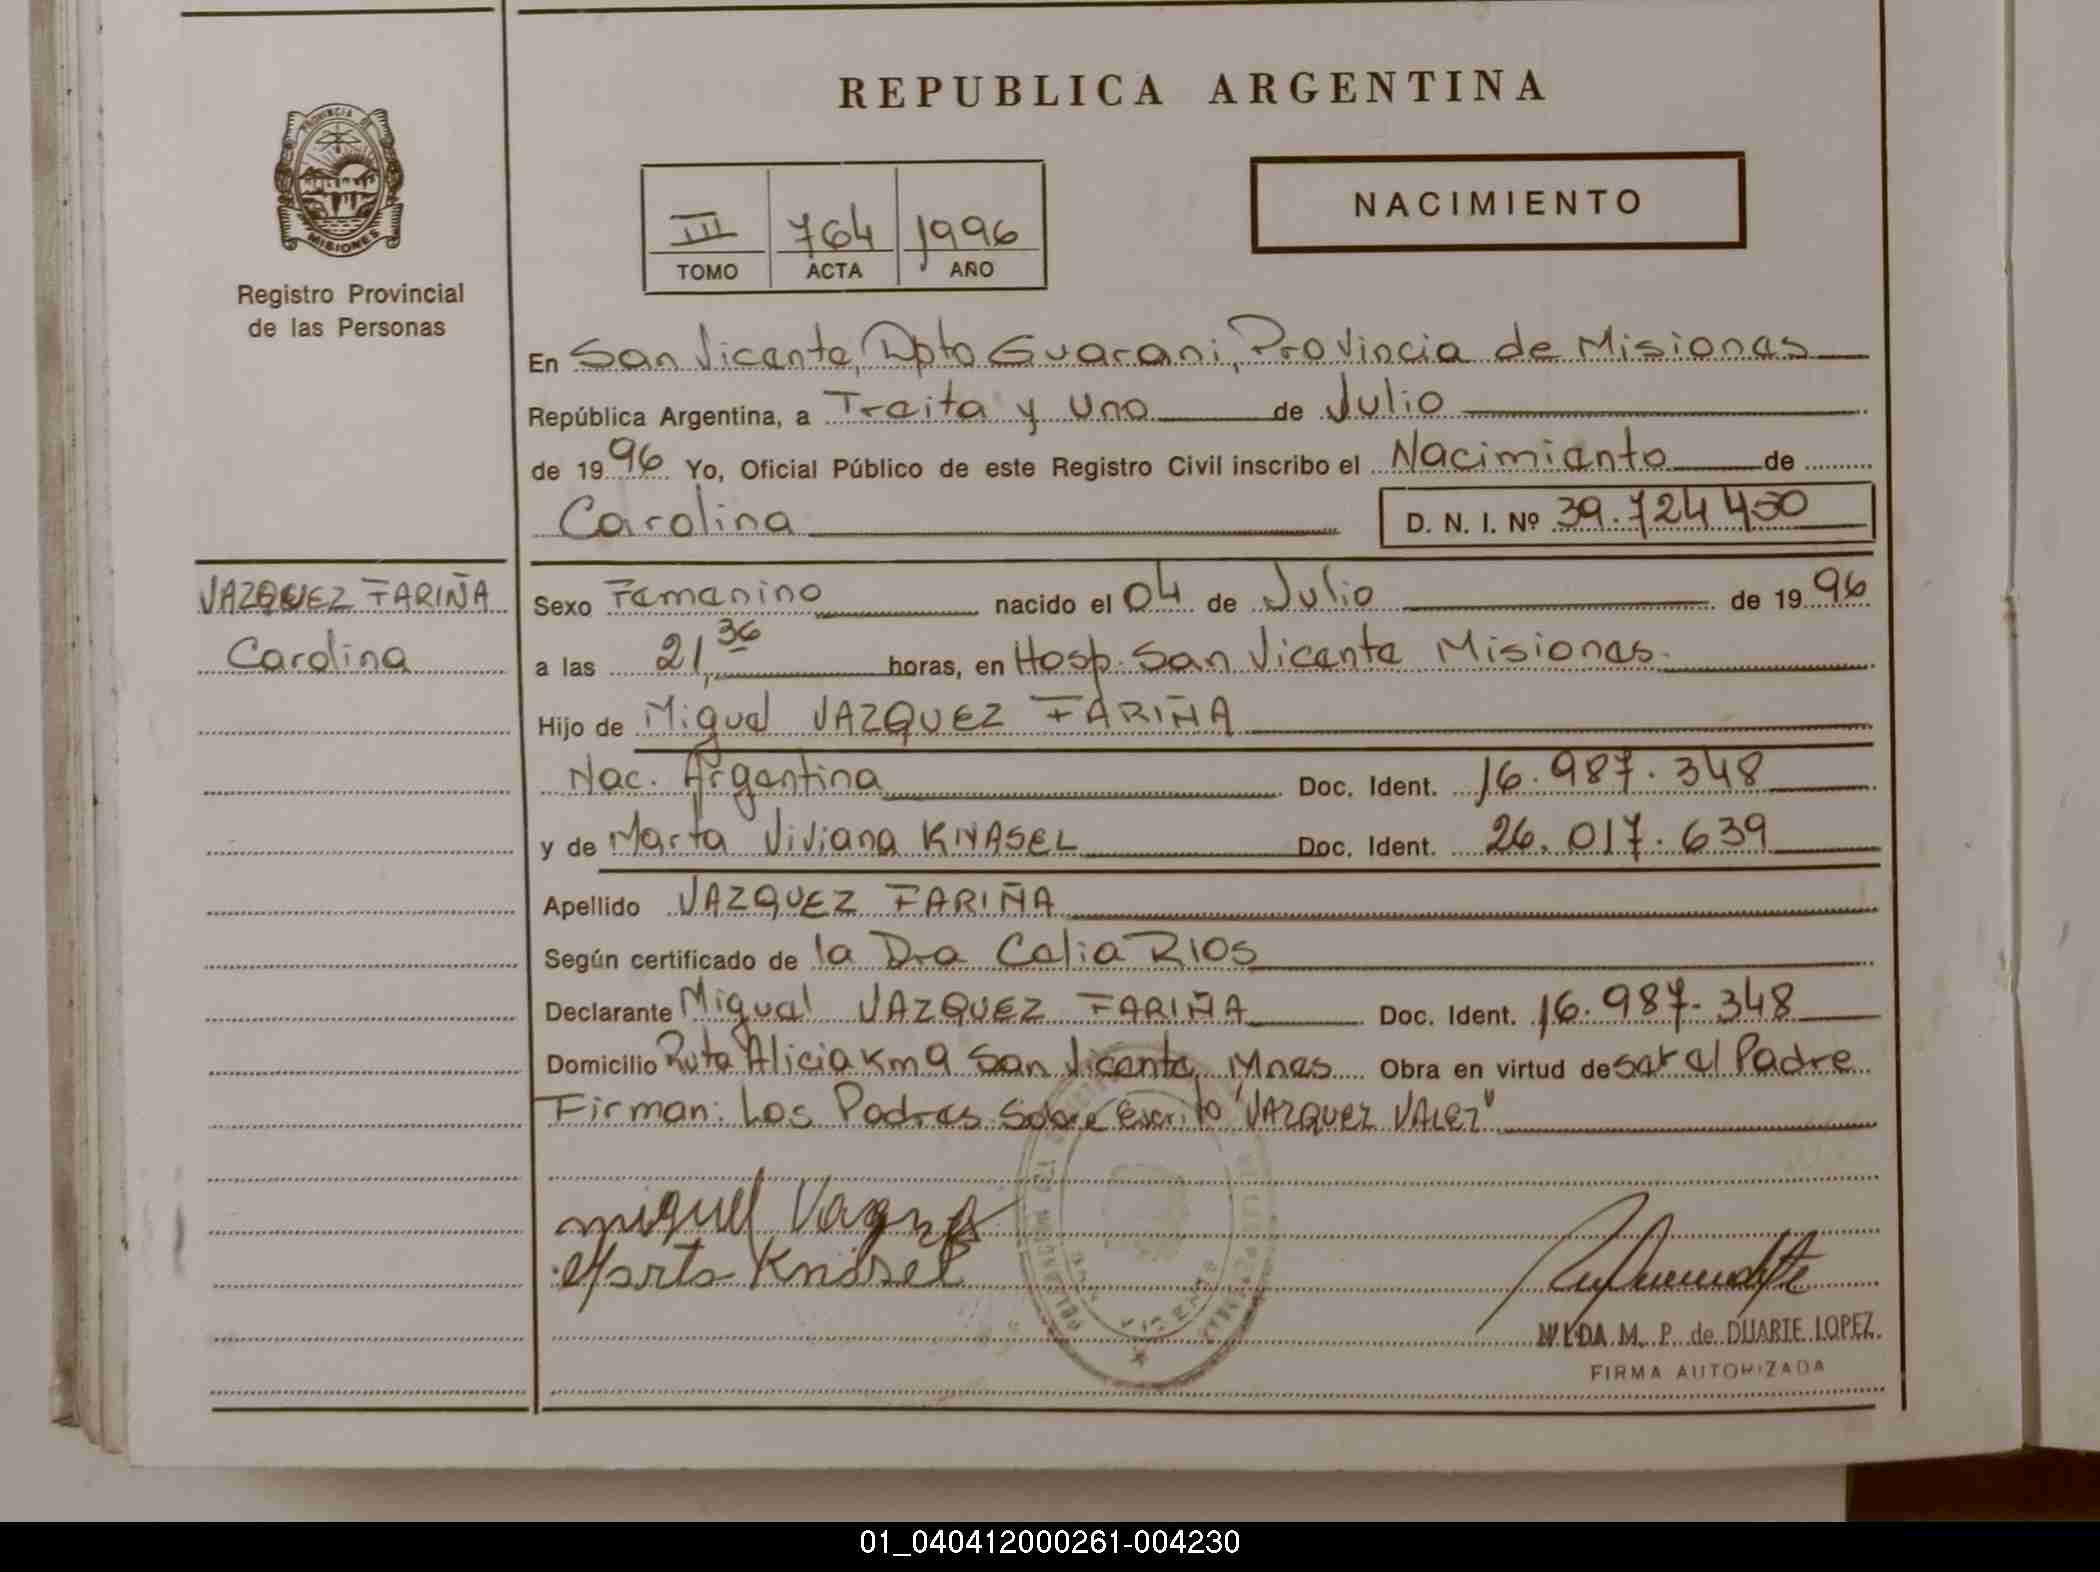 REPUBLICA ARGENTINA
PROVINCIA DE
MISIONES
Registro Provincial
de las Personas
III 764 1996
TOMO ACTA AÑO
NACIMIENTO
En San Vicente, Dpto Guarani, Provincia de Misiones
República Argentina, a Treita y Uno de Julio
de 1996 Yo, Oficial Público de este Registro Civil inscribo el Nacimiento de
Carolina D. N. I. Nº 39.724450
VAZQUEZ FARIÑA
Carolina
Sexo Femenino nacido el 04 de Julio de 1996
a las 21,36 horas, en Hosp. San Vicente Misiones.
Hijo de Miguel VAZQUEZ FARIÑA
Nac. Argentina Doc. Ident. 16.987.348
y de Marta Viviana KNASEL Doc. Ident. 26.017.639
Apellido VAZQUEZ FARIÑA
Según certificado de la Dra Celia RIOS
Declarante Miguel VAZQUEZ FARIÑA Doc. Ident. 16.987.348
Domicilio Ruta Alicia Km 9 San Vicente, Mnes Obra en virtud de ser el Padre
Firman: Los Padres Sobre escrito "VAZQUEZ VALEZ"
miguel Vazquez
Marta Knasel
NILDA M. P. de DUARTE LOPEZ
FIRMA AUTORIZADA
01_040412000261-004230